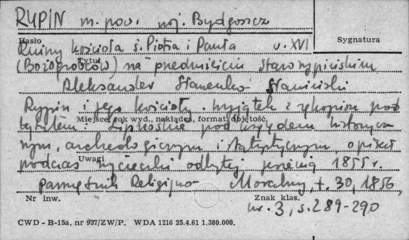 RYPIN m. pow. woj. Bydgoszcz
Hasło
Sygnatura
Ruiny kościoła ś. Piotra i Pawła w. XVI
Tytuł
(Bożogrobców) na przedmieściu Starorypińskim
Aleksander Stanenko Staniński
Rypin i jego kościoły. Wyjątek z rękopisu pod
Miejsce rok wyd., nakładca, format, objętość
tytułem: Lipnoskie pod względem historycz
nym, archeologicznym i statystycznym, opisał
Uwagi
podczas wycieczki odbytej jesienią 1855 r.
Pamiętnik Religijno Moralny, t. 30, 1856,
Nr inw.
Znak klas.
nr. 3, s. 289-290
CWD - B-15a, nr 927/ZW/P. WDA 1216 25.4.61 1.380.000.